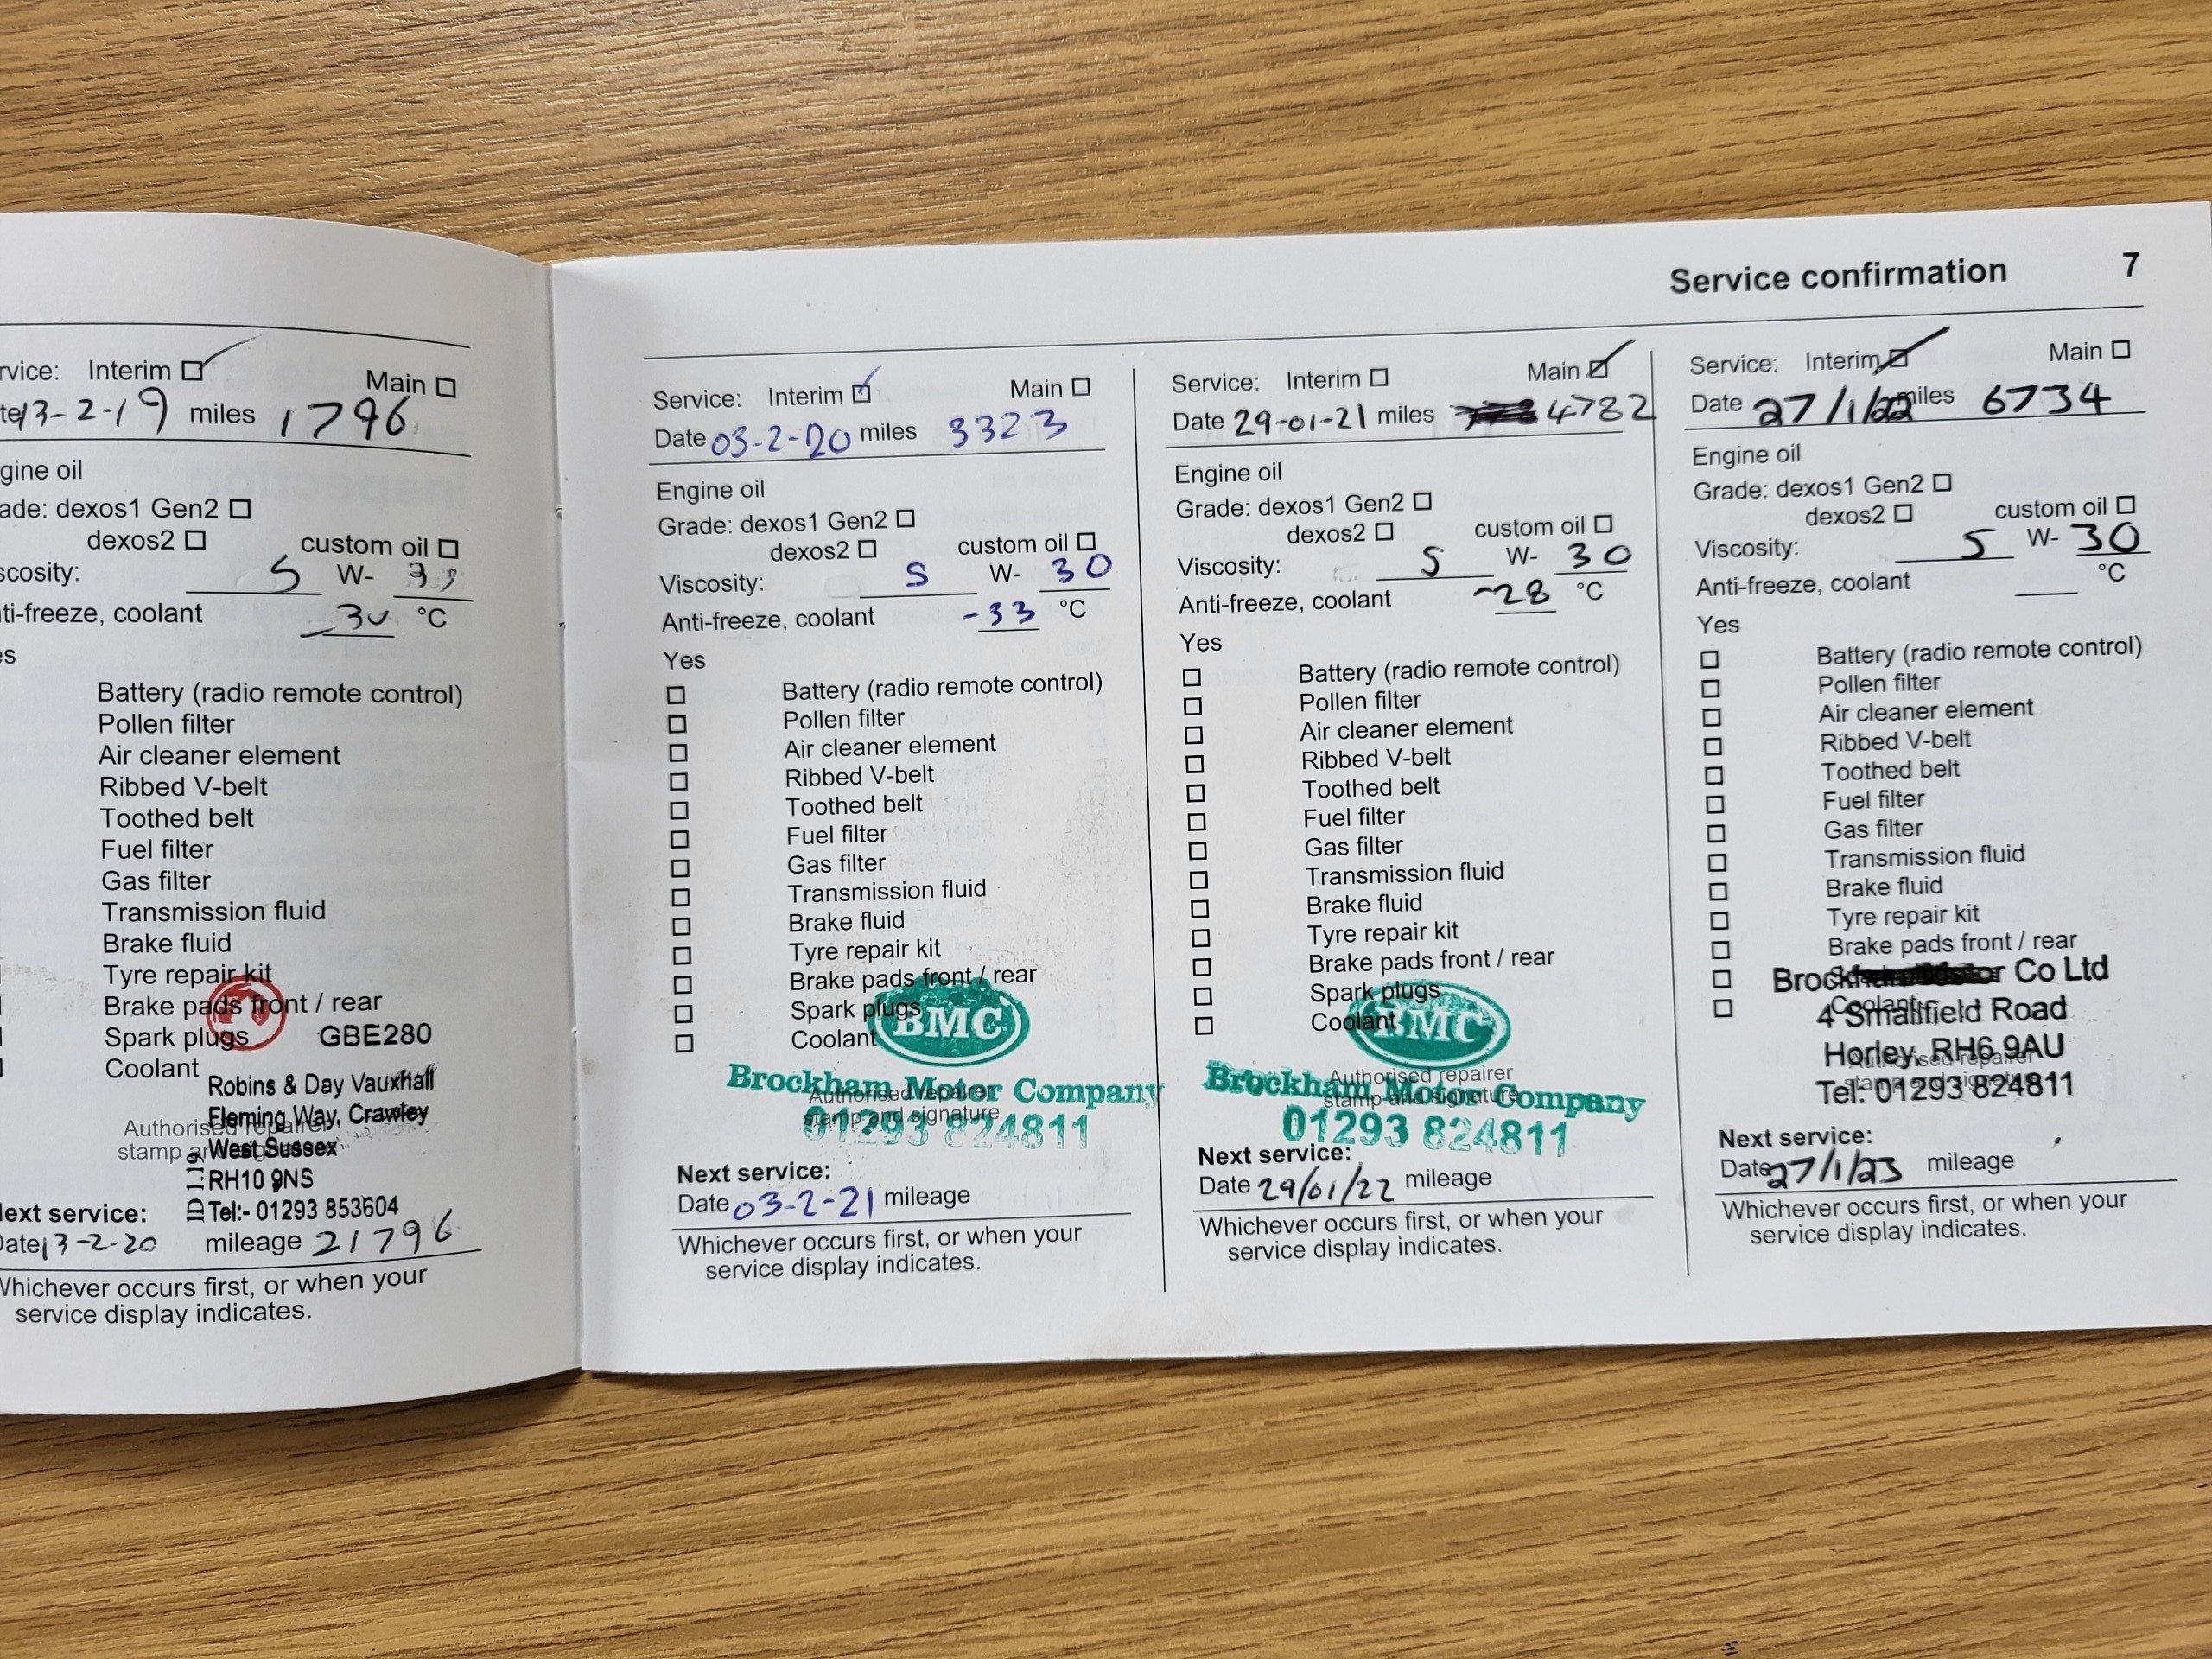 Service confirmation 7
rvice: Interim Main
te 13-2-19 miles 1796
gine oil
ade: dexos1 Gen2
dexos2 custom oil
scosity: 5 W- 30
ti-freeze, coolant -30 °C
es
Battery (radio remote control)
Pollen filter
Air cleaner element
Ribbed V-belt
Toothed belt
Fuel filter
Gas filter
Transmission fluid
Brake fluid
Tyre repair kit
Brake pads front / rear
Spark plugs GBE280
Coolant
Robins & Day Vauxhall
Fleming Way, Crawley
Authorised repairer
stamp and
West Sussex
RH10 9NS
Tel:- 01293 853604
ext service:
Date 13-2-20 mileage 21796
Whichever occurs first, or when your
service display indicates.
Service: Interim Main
Date 03-2-20 miles 3323
Engine oil
Grade: dexos1 Gen2
dexos2 custom oil
Viscosity: 5 W- 30
Anti-freeze, coolant -33 °C
Yes
Battery (radio remote control)
Pollen filter
Air cleaner element
Ribbed V-belt
Toothed belt
Fuel filter
Gas filter
Transmission fluid
Brake fluid
Tyre repair kit
Brake pads front / rear
Spark plugs
Coolant
BMC
Brockham Motor Company
Authorised repairer
stamp and signature
01293 824811
Next service:
Date 03-2-21 mileage
Whichever occurs first, or when your
service display indicates.
Service: Interim Main
Date 29-01-21 miles 4782
Engine oil
Grade: dexos1 Gen2
dexos2 custom oil
Viscosity: 5 W- 30
Anti-freeze, coolant -28 °C
Yes
Battery (radio remote control)
Pollen filter
Air cleaner element
Ribbed V-belt
Toothed belt
Fuel filter
Gas filter
Transmission fluid
Brake fluid
Tyre repair kit
Brake pads front / rear
Spark plugs
Coolant
BMC
Authorised repairer
Brockham Motor Company
stamp and signature
01293 824811
Next service:
Date 29/01/22 mileage
Whichever occurs first, or when your
service display indicates.
Service: Interim Main
Date 27/1/22 miles 6734
Engine oil
Grade: dexos1 Gen2
dexos2 custom oil
Viscosity: 5 W- 30
Anti-freeze, coolant °C
Yes
Battery (radio remote control)
Pollen filter
Air cleaner element
Ribbed V-belt
Toothed belt
Fuel filter
Gas filter
Transmission fluid
Brake fluid
Tyre repair kit
Brake pads front / rear
Co Ltd
Coolant
4 Smallfield Road
Horley, RH6 9AU
Authorised repairer
stamp and signature
Tel: 01293 824811
Next service:
Date 27/1/23 mileage
Whichever occurs first, or when your
service display indicates.